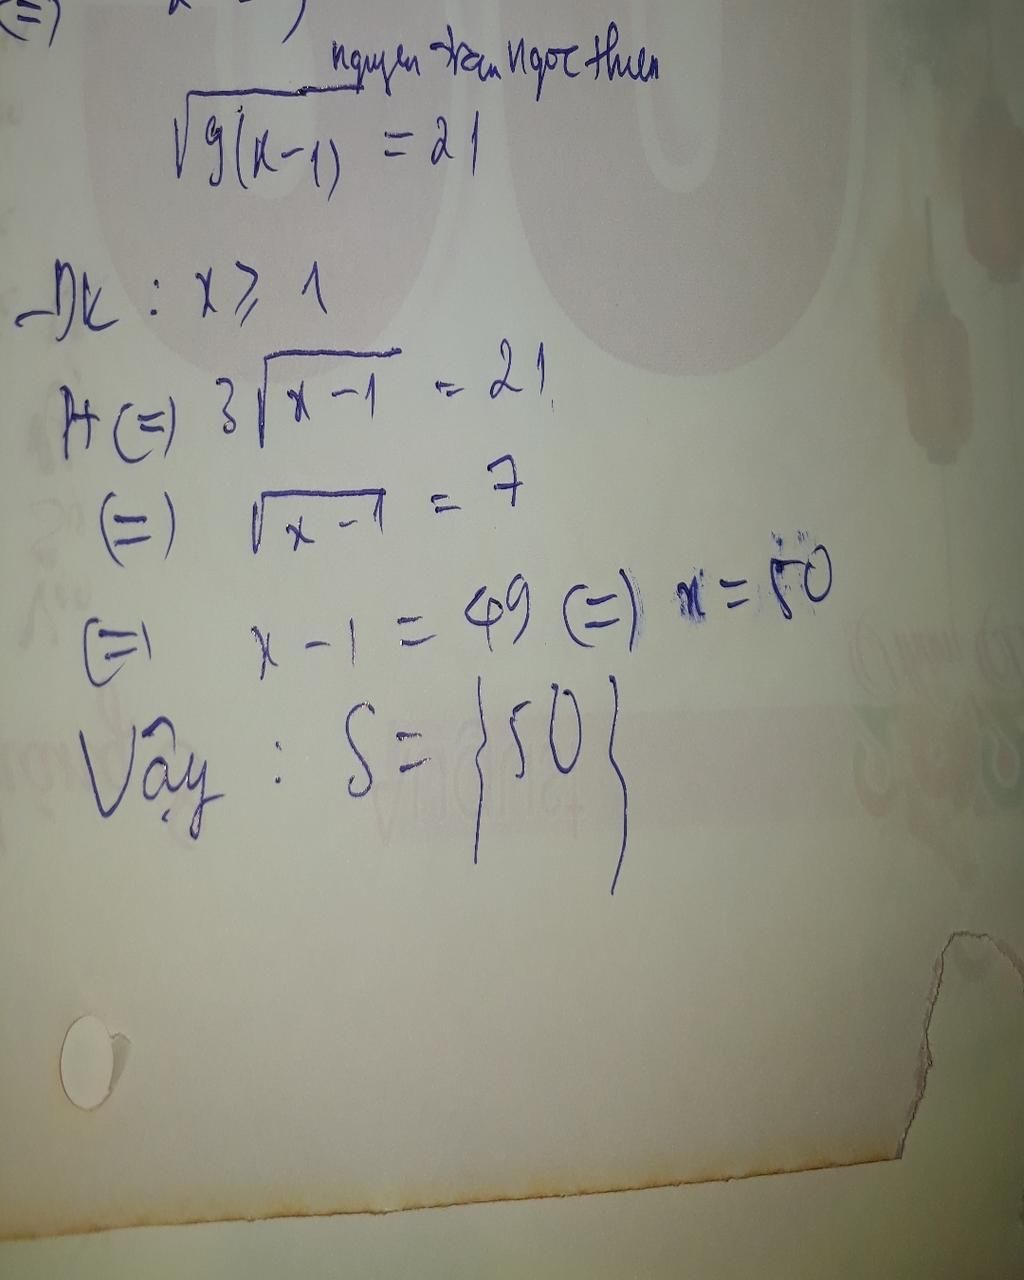 (=)
nguyen tran ngoc thien
√9(x-1) = 21
ĐK : x ≥ 1
Pt (=) 3√x-1 = 21
(=) √x-1 = 7
(=) x-1 = 49 (=) x = 50
Vậy : S = {50}